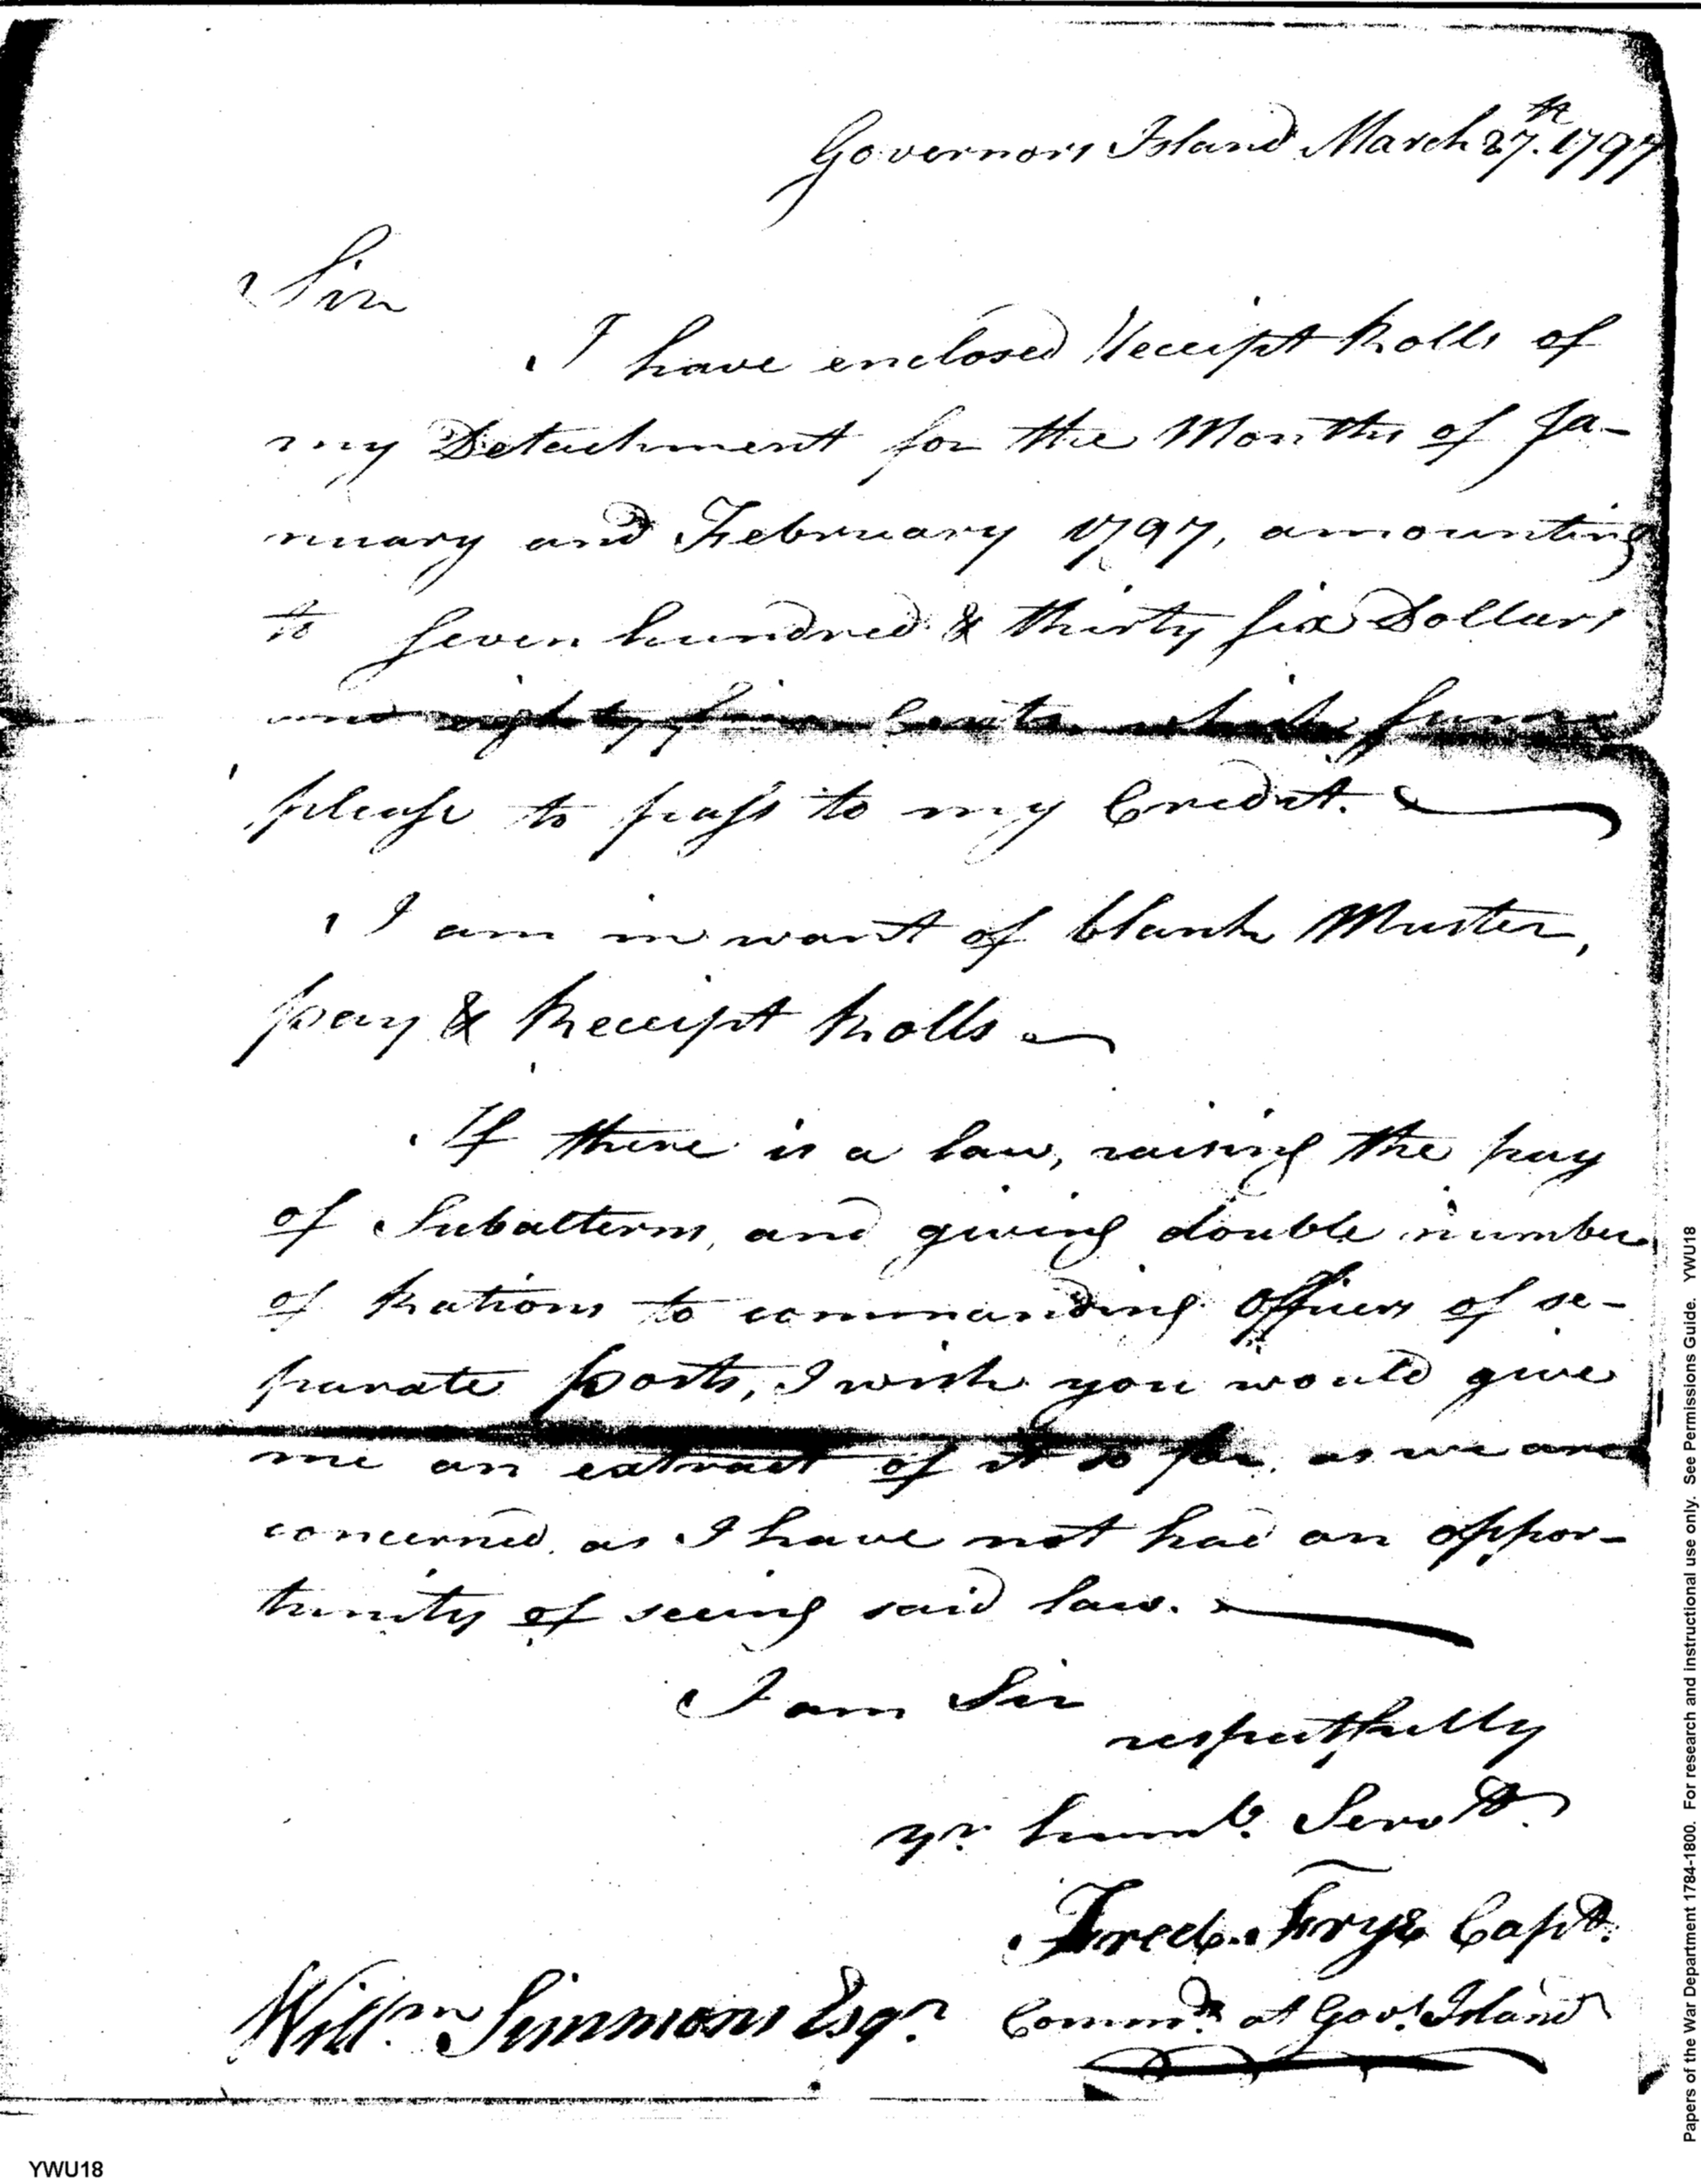 Governors Island March 27.th 1797
Sir
I have enclosed Receipt Rolls of
my Detachment for the Months of Ja-
nuary and February 1797, amounting
to Seven hundred & thirty six Dollars
and eighty five Cents which sum
please to pass to my Credit.
I am in want of blank Muster,
pay & Receipt Rolls
If there is a law, raising the pay
of Subalterns, and giving double number
of Rations to commanding Officers of se-
parate posts, I wish you would give
me an extract of it so far, as we are
concerned, as I have not had an oppor-
tunity of seeing said law.
I am Sir
respectfully
yr. humb. Servt.
Fred. Frye Capt.
Willm Simmons Esqr. Commdt at Govs. Island
YWU18
Papers of the War Department 1784-1800. For research and instructional use only. See Permissions Guide. YWU18